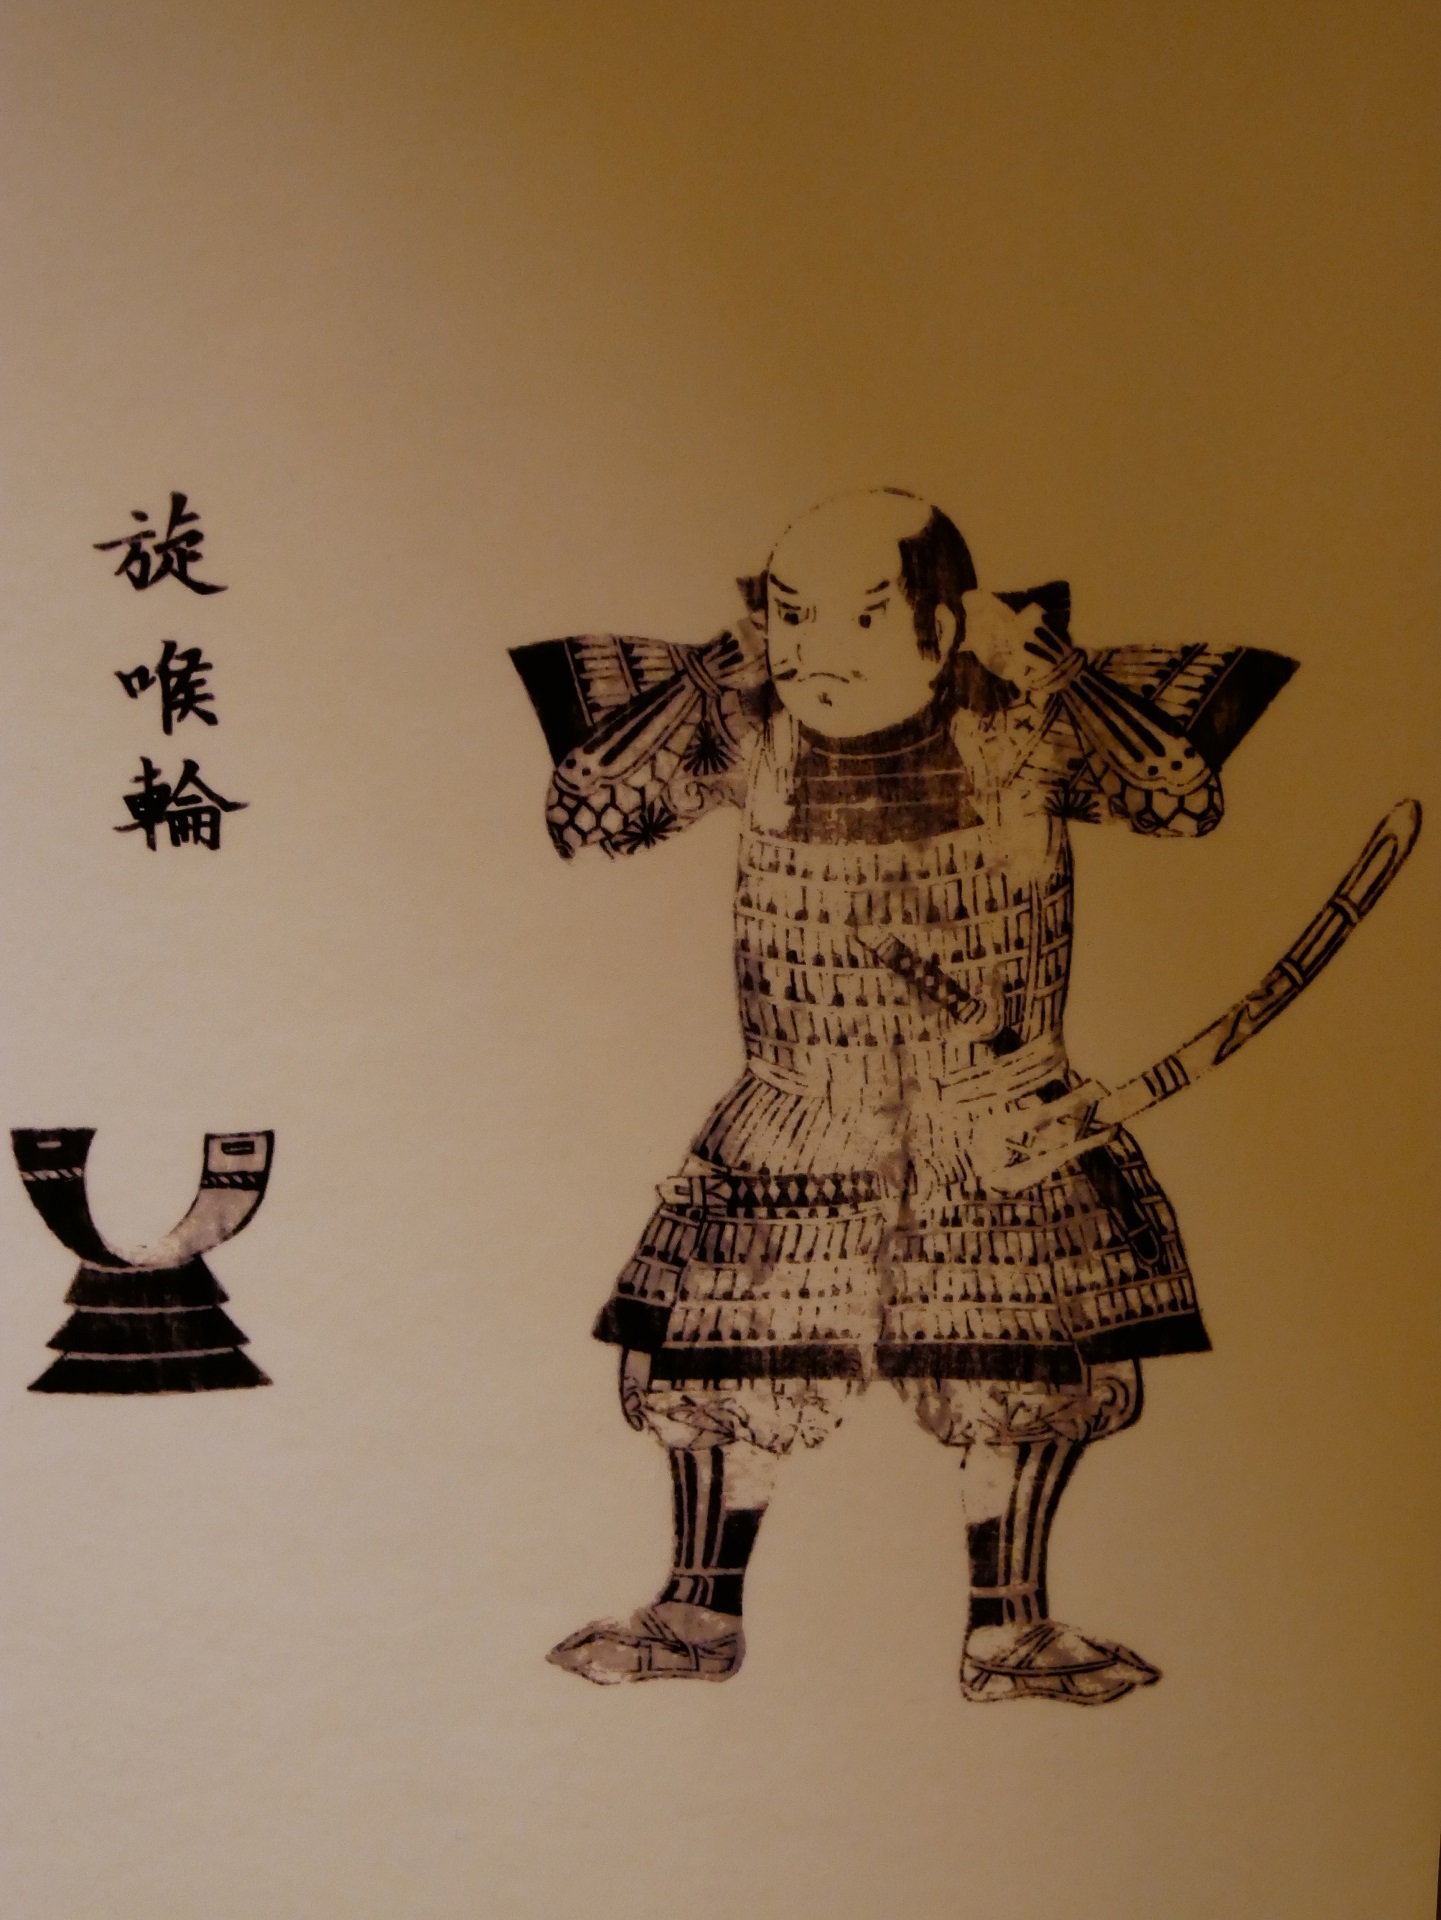 旋喉輪